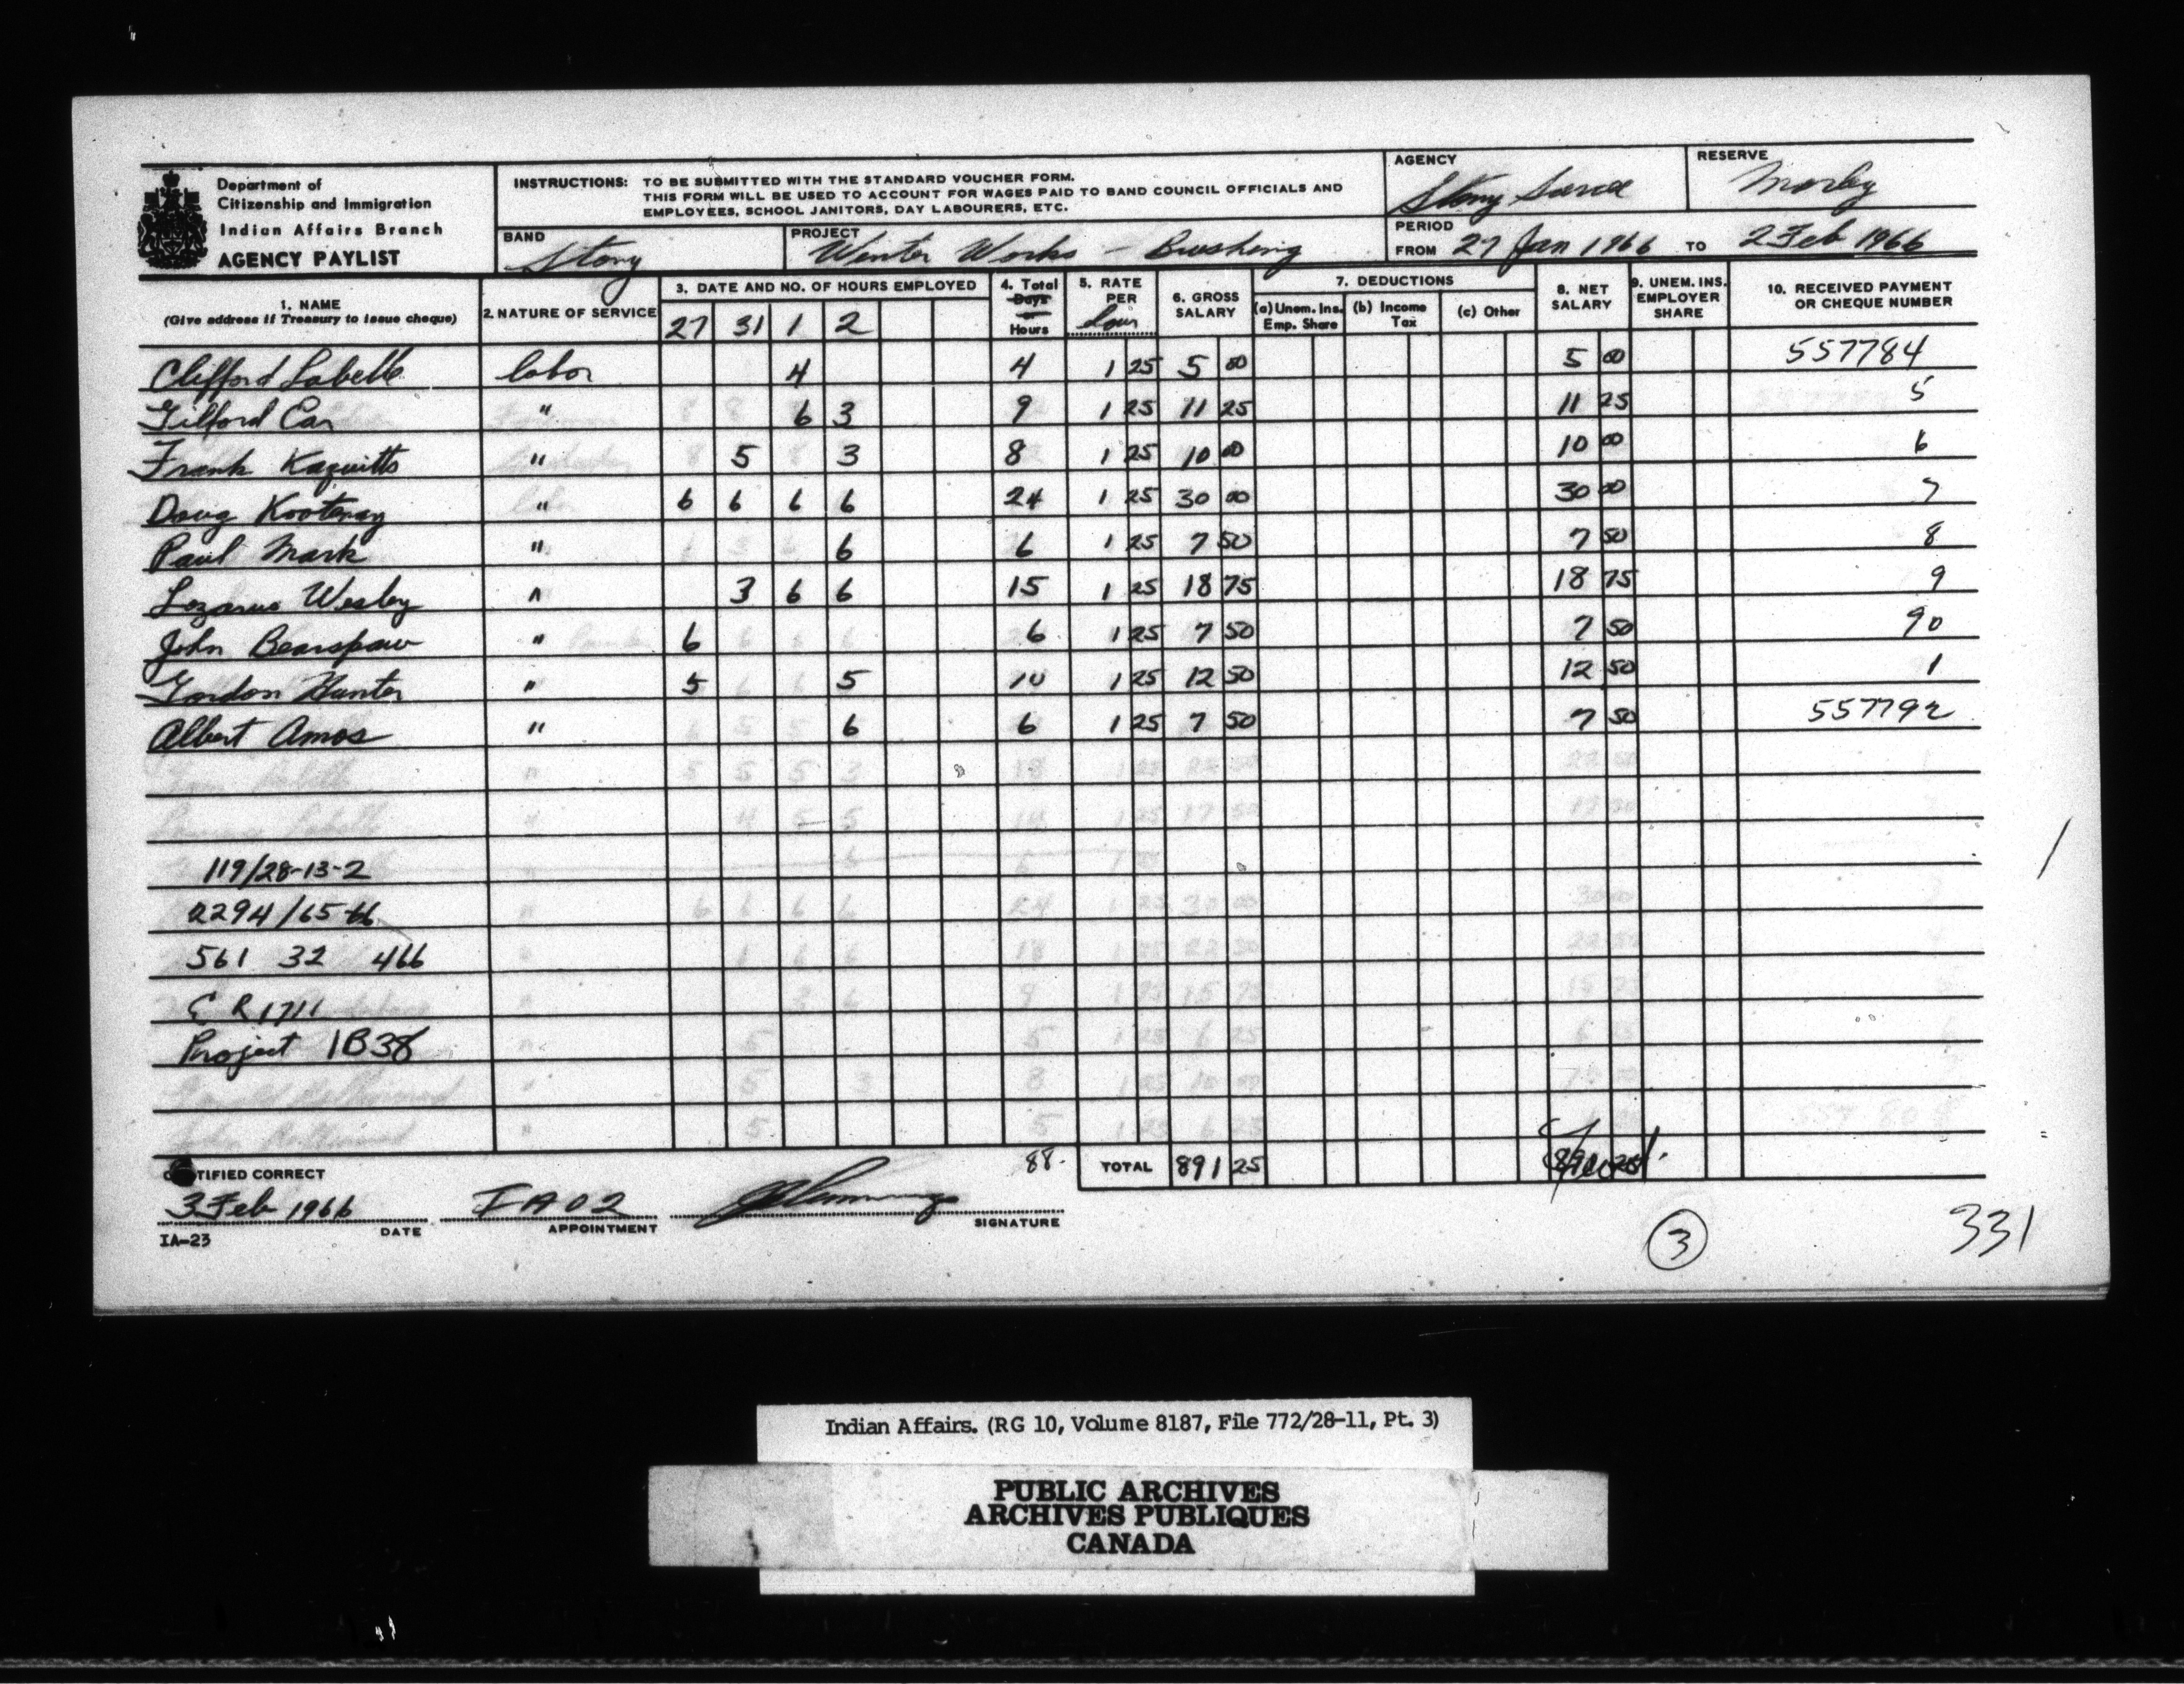 Department of
Citizenship and Immigration
Indian Affairs Branch
AGENCY PAYLIST
INSTRUCTIONS: TO BE SUBMITTED WITH THE STANDARD VOUCHER FORM.
THIS FORM WILL BE USED TO ACCOUNT FOR WAGES PAID TO BAND COUNCIL OFFICIALS AND
EMPLOYEES, SCHOOL JANITORS, DAY LABOURERS, ETC.
AGENCY
Stony Sarcee
RESERVE
Morley
BAND
Stony
PROJECT
Winter Works - Brushing
PERIOD
FROM 27 Jan 1966 TO 2 Feb 1966
1. NAME
(Give address if Treasury to issue cheque)
2. NATURE OF SERVICE
3. DATE AND NO. OF HOURS EMPLOYED
27 31 1 2
4. Total
Days
or
Hours
5. RATE
PER
hour
6. GROSS
SALARY
7. DEDUCTIONS
(a) Unem. Ins.
Emp. Share
(b) Income
Tax
(c) Other
8. NET
SALARY
9. UNEM. INS.
EMPLOYER
SHARE
10. RECEIVED PAYMENT
OR CHEQUE NUMBER
Clifford Labelle labor 4 4 1 25 5 00 5 00 557784
Gilford Ear " 6 3 9 1 25 11 25 11 25 5
Frank Kaquitts " 5 3 8 1 25 10 00 10 00 6
Doug Kootenay " 6 6 6 6 24 1 25 30 00 30 00 7
Paul Mark " 6 6 1 25 7 50 7 50 8
Lazarus Wesley " 3 6 6 15 1 25 18 75 18 75 9
John Bearspaw " 6 6 1 25 7 50 7 50 90
Gordon Hunter " 5 5 10 1 25 12 50 12 50 1
Albert Amos " 6 6 1 25 7 50 7 50 557792
119/28-13-2
2294/65-66
561 32 466
C R 1711
Project 1B38
88.
TOTAL 891 25
CERTIFIED CORRECT
3 Feb 1966
DATE
IA 02
APPOINTMENT
SIGNATURE
IA-23
3
331
Indian Affairs. (RG 10, Volume 8187, File 772/28-11, Pt. 3)
PUBLIC ARCHIVES
ARCHIVES PUBLIQUES
CANADA